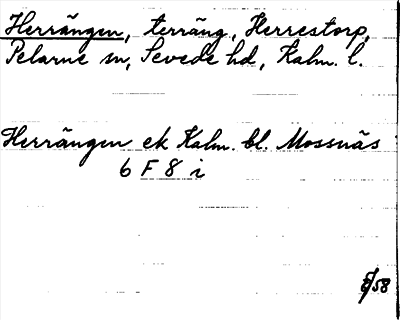 Herrängen, terräng, Herrestorp,
Pelarne sn, Sevede hd, Kalm. l.
Herrängen ek Kalm. bl. Mossnäs
6 F 8 i
/58